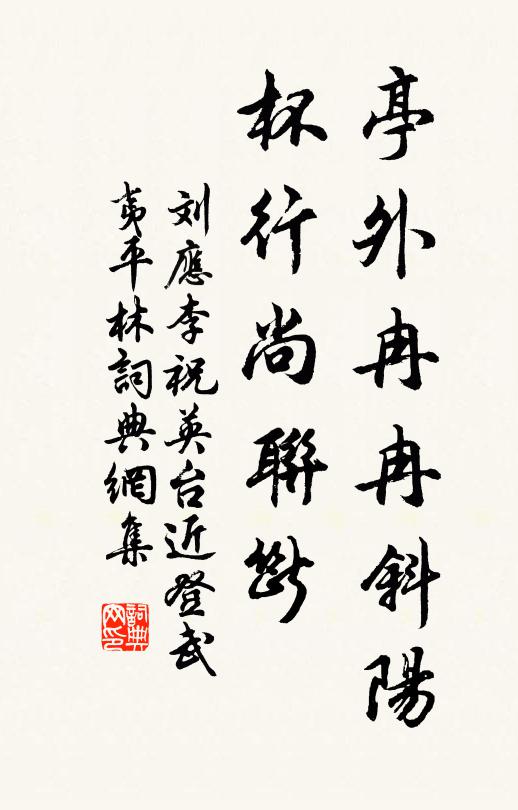 亭外冉冉斜陽
杯行尚聯
刘應李祝英台近登武
夷平林詞典網集
詞典
网印